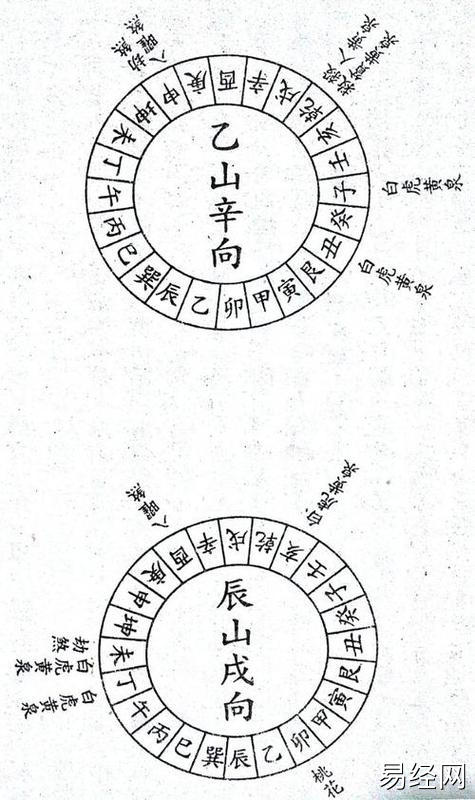 八曜煞
劫煞
白虎黄泉
白虎黄泉
酉辛戌乾亥壬子癸丑艮寅甲卯乙辰巽巳丙午丁未坤申庚
乙山辛向
八曜煞
白虎黄泉
劫煞
白虎黄泉
白虎黄泉
桃花
戌乾亥壬子癸丑艮寅甲卯乙辰巽巳丙午丁未坤申庚酉辛
辰山戌向
易经网